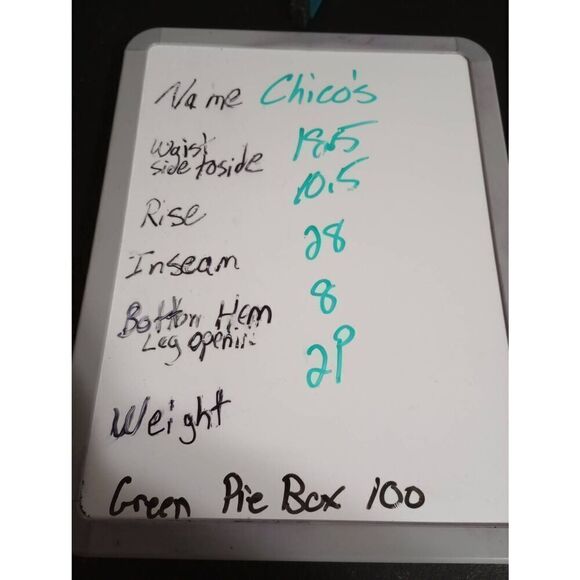 Name Chico's
Waist 18.5
side to side 10.5
Rise
28
Inseam
Bottom Hem 8
Leg openin
2P
Weight
Green Pie Box 100